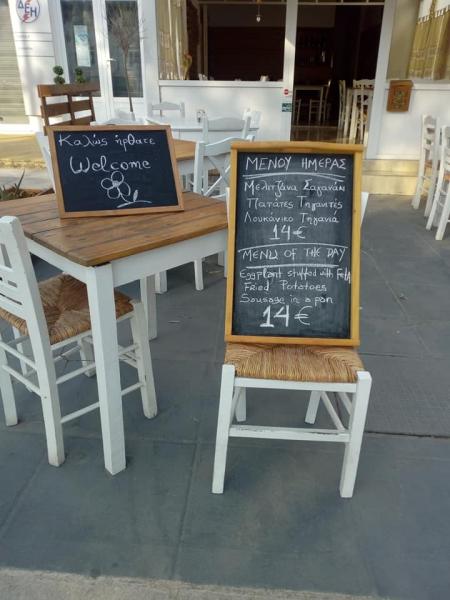 ΔΕΗ
Καλώς ήρθατε
Welcome
ΜΕΝΟΥ ΗΜΕΡΑΣ
Μελιτζάνα Σαγανάκι
Πατάτες Τηγανιτές
Λουκάνικο Τηγανιά
14€
MENU OF THE DAY
Eggplant stuffed with Feta
Fried Potatoes
Sausage in a pan
14€